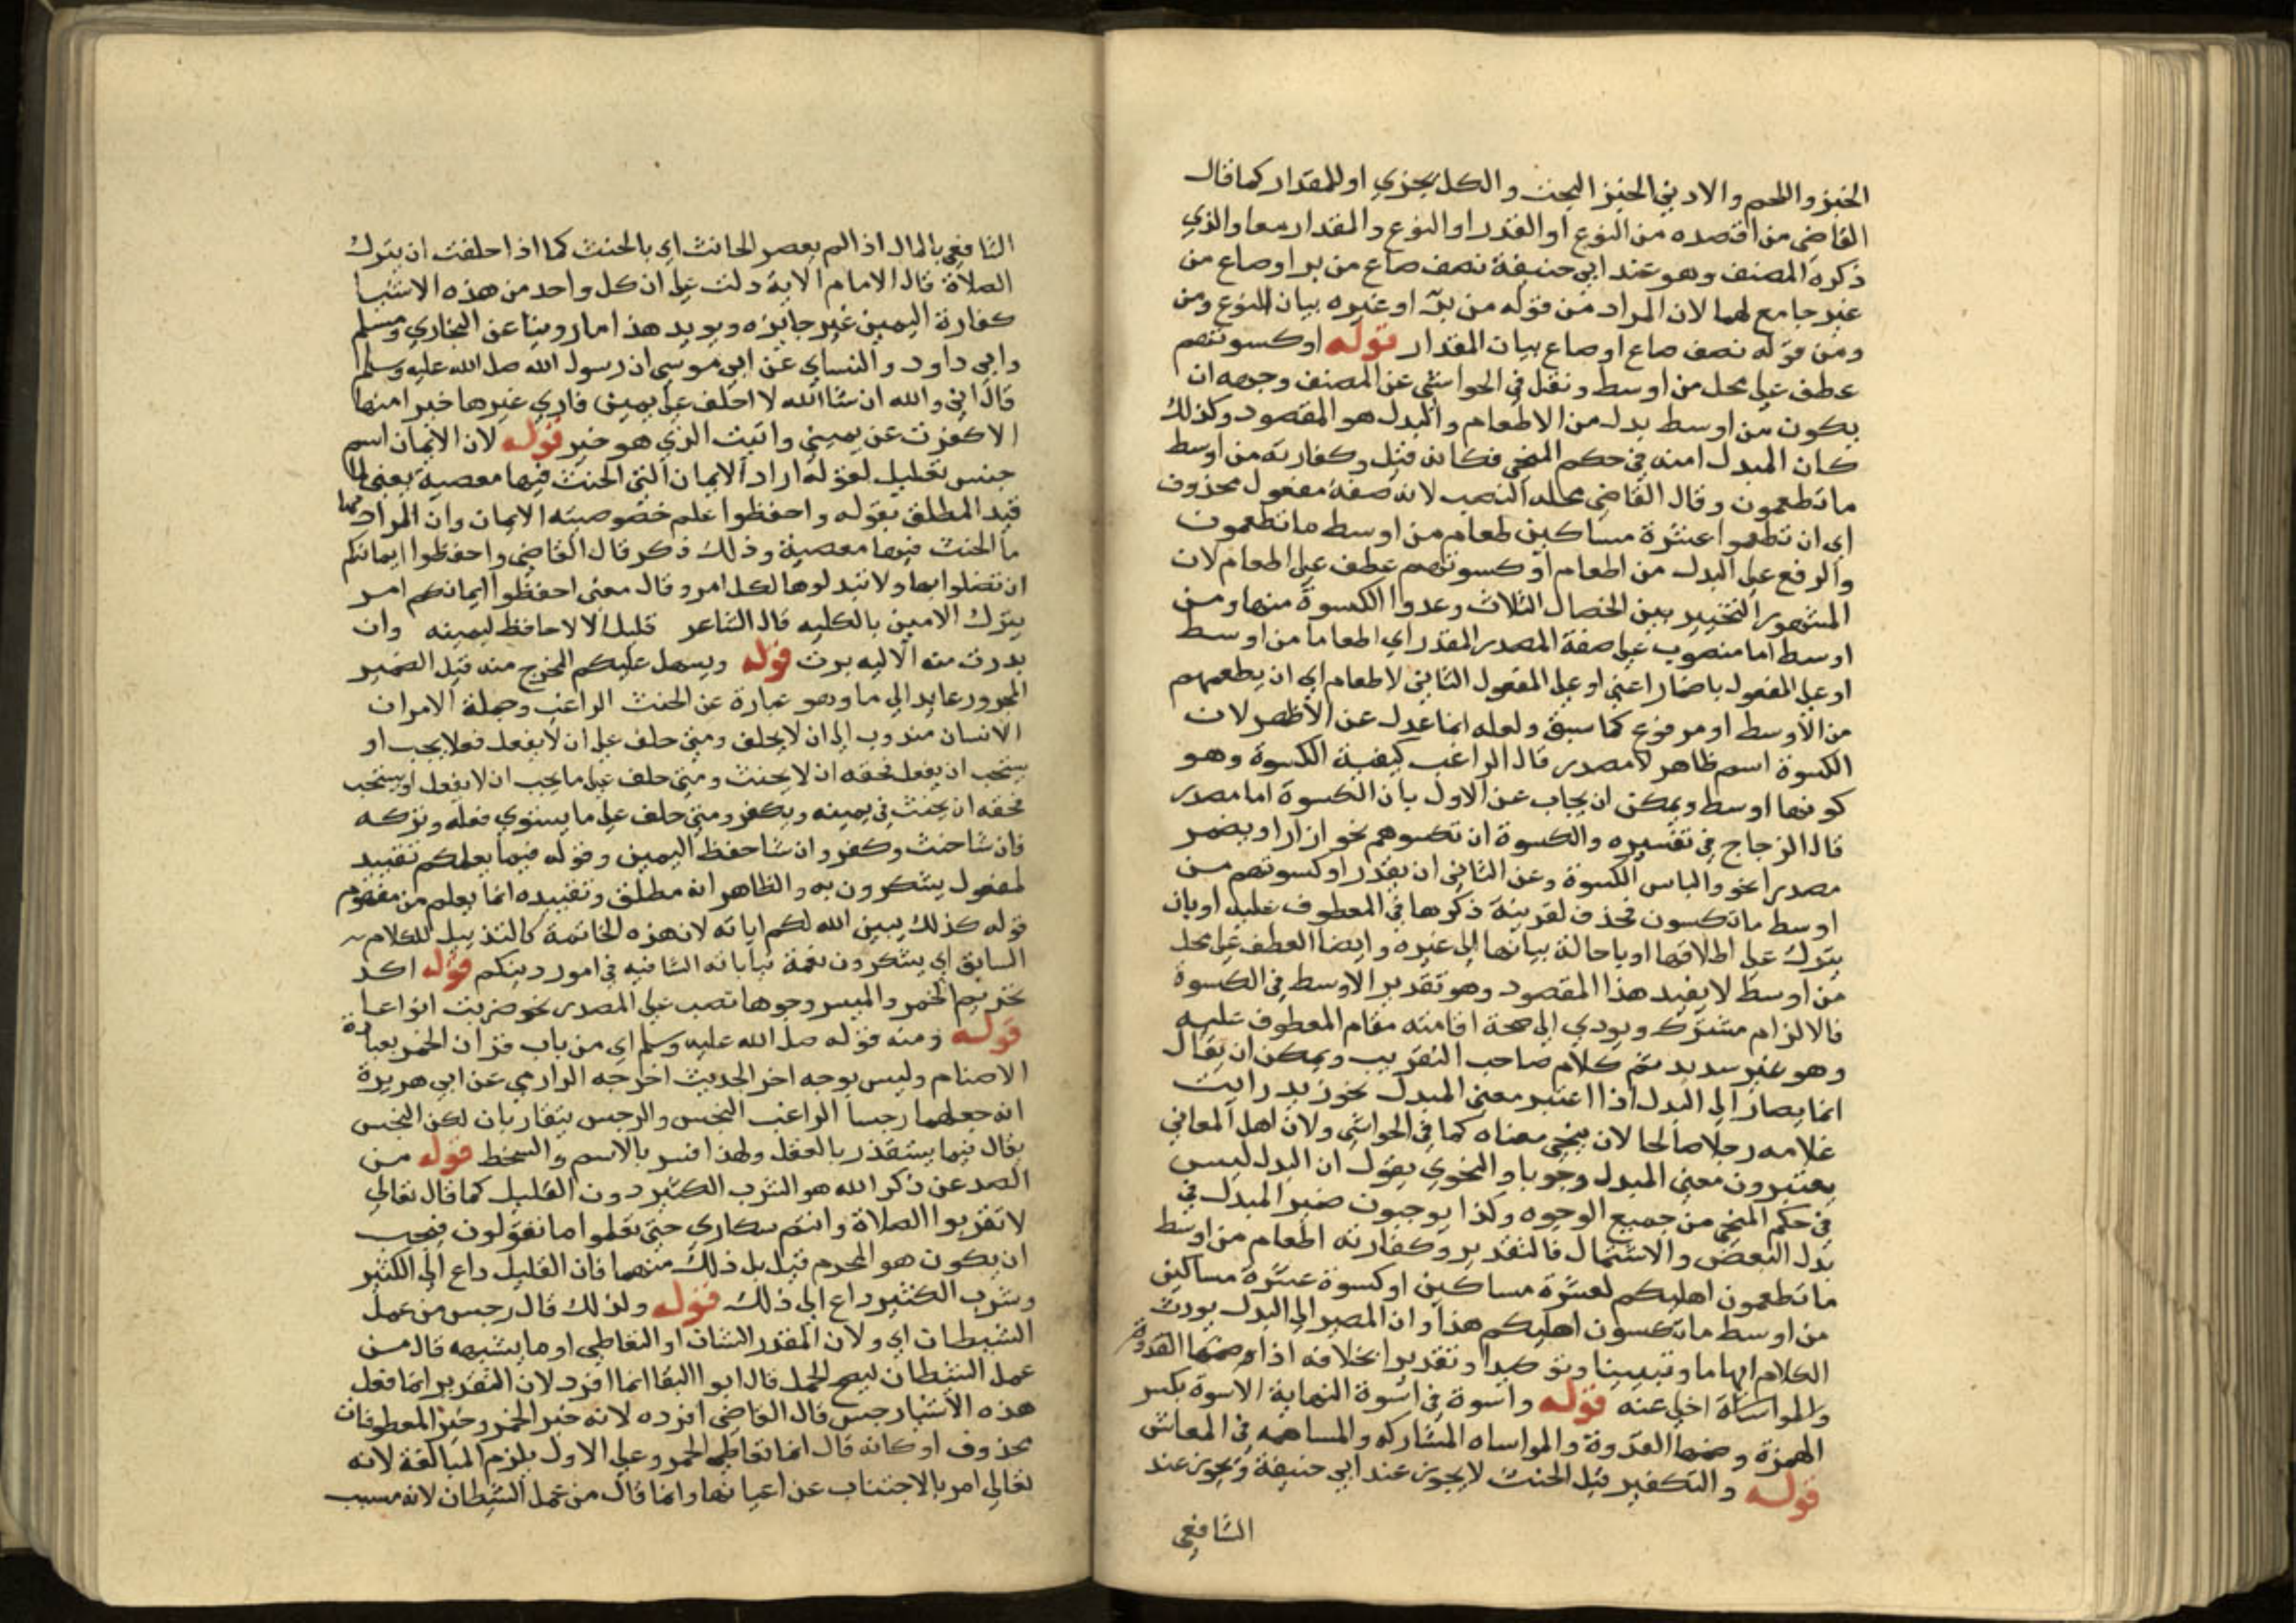 الخبز واللحم والادني الخبز البحت والكل يجزي او للمقدار كما قال
القاضي من اقصده من النوع او القدر او النوع والمقدار معا والذي
ذكره المصنف وهو عند ابي حنيفة نصف صاع من بر او صاع من
غير جامع لهما لان المراد من قوله من بر او غيره بيان النوع ومن
ومن قوله نصف صاع او صاع بيان المقدار قوله او كسوتهم
عطف علي محل من اوسط ونقل في الحواشي عن المصنف وجهه ان
يكون من اوسط بدل من الاطعام والبدل هو المقصود وكذلك
كان المبدل منه في حكم المنحي فكانه قيل وكفارته من اوسط
ما تطعمون وقال القاضي محله النصب لانه صفة مفعول محذوف
اي ان تطعموا عشرة مساكين طعام من اوسط ما تطعمون
والرفع علي البدل من اطعام او كسوتهم عطف علي اطعام لان
المشهور التخيير بين الخصال الثلاث وعدوا الكسوة منها ومن
اوسط اما منصوب علي صفة المصدر المقدر اي اطعاما من اوسط
او علي المفعول باضمار اعني او علي المفعول الثاني لاطعام اي ان يطعمهم
من الاوسط او مرفوع كما سبق ولعله انما عدل عن الاظهر لان
الكسوة اسم ظاهر لا مصدر قال الراغب كيفية الكسوة وهو
كونها اوسط ويمكن ان يجاب عن الاول بان الكسوة اما مصدر
قال الزجاج في تفسيره والكسوة ان تكسوهم نحو ازار او يضمر
مصدرا نحو والباس الكسوة وعن الثاني ان يقدر او كسوتهم من
اوسط ما تكسون فحذف لقرينة ذكرها في المعطوف عليه او بان
يترك علي اطلاقها او باحالة بيانها الي غيره وايضا العطف علي محل
من اوسط لا يفيد هذا المقصود وهو تقدير الاوسط في الكسوة
فالالزام مشترك ويودي الي صحة اقامته مقام المعطوف عليه
وهو غير سديد تم كلام صاحب التقريب ويمكن ان يقال
انما يصار الي البدل اذا اعتبر معني المبدل نحو زيد رايت
غلامه رجلا صالحا لان ينحي معناه كما في الحواشي ولان اهل المعاني
يعتبرون معني المبدل وجوبا والنحوي يقول ان البدل ليس
في حكم المنحي من جميع الوجوه وكذا يوجبون ضمير المبدل في
بدل البعض والاشتمال فالتقدير وكفارته اطعام من اوسط
ما تطعمون اهليكم لعشرة مساكين او كسوة عشرة مساكين
من اوسط ما تكسون اهليكم هذا وان المصير الي البدل يورث
الكلام ابهاما وتبيينا وتوكيدا وتقديرا بخلافه اذا
والمواساة اخلي عنه قوله واسوة في اسوة النهاية الاسوة بكسر
الهمزة وضمها القدوة والمواساه المشاركه والمساهمه في المعاش
قوله والتكفير قبل الحنث لا يجوز عند ابي حنيفة ويجوز عند
الشافعي
الشافعي بالمال اذا لم يعصر الحانث اي بالحنث كما اذا حلفت ان يترك
الصلاة قال الامام الاية دلت علي ان كل واحد من هذه الاشيا
كفارة اليمين غير جايزه ويويد هذا ما روينا عن البخاري ومسلم
وابي داود والنساي عن ابي موسي ان رسول الله صلى الله عليه وسلم
قال اني والله ان شا الله لا احلف علي يمين فاري غيرها خيرا منها
الا كفرت عن يميني واتيت الذي هو خير قوله لان الايمان اسم
جنس تعليل لقوله اراد الايمان التي الحنث فيها معصية يعني لما
قيد المطلق بقوله واحفظوا علم خصوصيته الايمان وان المراد منها
ما الحنث فيها معصية وذلك ذكر قال القاضي واحفظوا ايمانكم
ان تضلوا بها ولا تبدلوها لكل امر وقال معني احفظوا ايمانكم امر
بترك الامين بالكليه قال الشاعر قليل الالا حافظ ليمينه وان
بدرت منه الاليه برت قوله ويسهل عليكم المخرج منه قيل الضمير
المجرور عايد الي ما وهو عبارة عن الحنث الراغب وجملة الامر ان
الانسان مندوب الي ان لا يحلف ومتي حلف علي ان لا يفعل فعلا يجب او
يستحب ان يفعل فحقه ان لا يحنث ومتي حلف علي ما يجب ان لا يفعل او يستحب
فحقه ان يحنث في يمينه ويكفر ومتي حلف علي ما يستوي فعله وتركه
فان شا حنث وكفر وان شا حفظ اليمين وقوله فيما يعلمكم تقييد
لمفعول يشكرون به والظاهر انه مطلق وتقييده انما يعلم من مفهوم
قوله كذلك يبين الله لكم اياته لان هذه الخاتمة كالتذييل للكلام
السابق اي يشكرون نعمة بيانه الشافيه في امور دينكم قوله اكد
تحريم الخمر والميسر وجوها نصب علي المصدر نحو ضربت انواعا
قوله ومنه قوله صلى الله عليه وسلم اي من باب قران الخمر بعبادة
الاصنام وليس بوجه اخر الحديث اخرجه الدارمي عن ابي هريرة
انه جعلهما رجسا الراغب النجس والرجس يتقاربان لكن النجس
يقال فيما يستقذر بالعقل ولهذا فسر بالاسم والسخط قوله من
الصد عن ذكر الله هو الشرب الكثير دون القليل كما قال تعالي
لا تقربوا الصلاة وانتم سكاري حتي تعلموا ما تقولون فيجب
ان يكون هو المحرم قيل بل ذلك منهما فان القليل داع الي الكثير
وشرب الكثير داع الي ذلك قوله ولذلك قال رجس من عمل
الشيطان اي ولان المقدر الشان او التعاطي او ما يشبهه قال من
عمل الشيطان ليصح الحمل قال ابو البقا انما افرد لان التقدير انما فعل
هذه الاشيا رجس قال القاضي افرده لانه خبر الخمر وخبر المعطوفات
محذوف او كانه قال انما تعاطي الخمر وعلي الاول يلزم المبالغة لانه
تعالي امر بالاجتناب عن اعيانها وانما قال من عمل الشيطان لانه مسبب